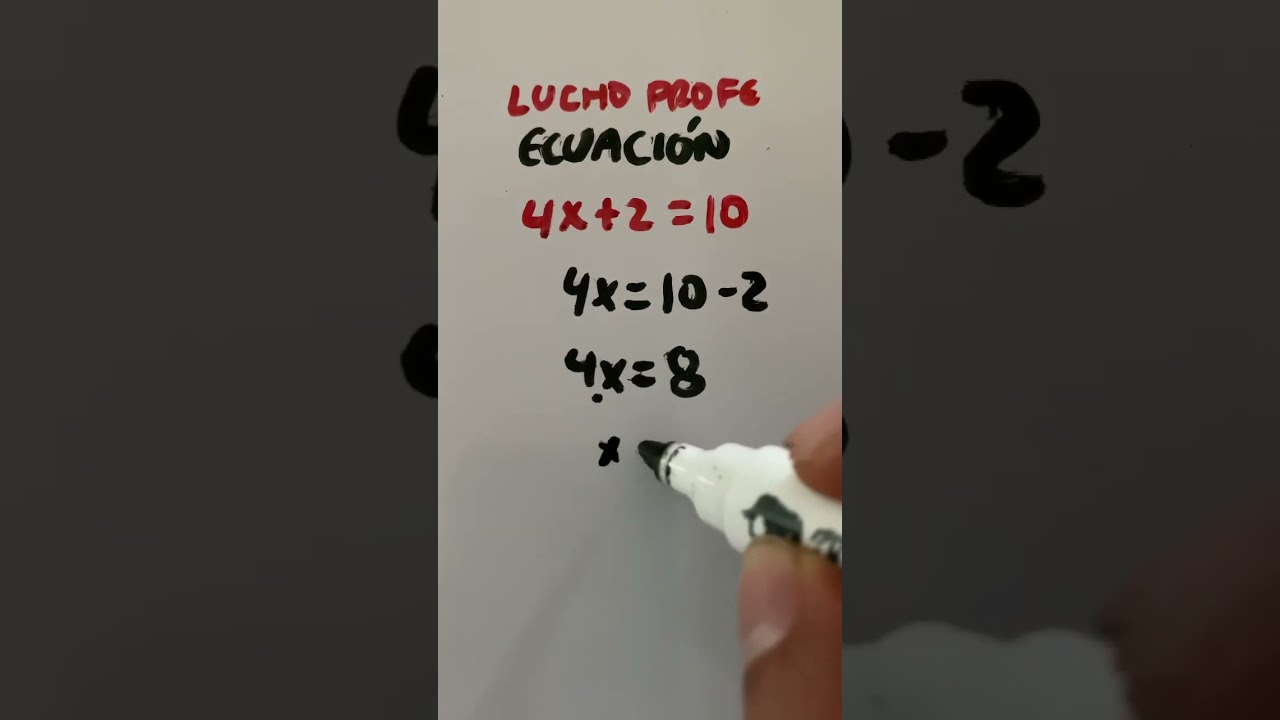 LUCHO PROFE
ECUACIÓN
4x+2=10
4x=10-2
4x=8
x